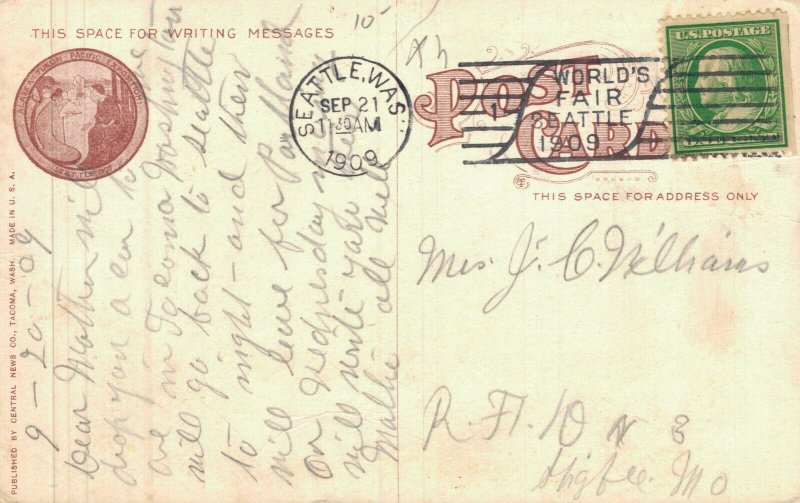 THIS SPACE FOR WRITING MESSAGES
ALASKA YUKON PACIFIC EXPOSITION
SEATTLE
PUBLISHED BY CENTRAL NEWS CO., TACOMA, WASH. MADE IN U. S. A.
9-20-09
Dear Mother will
drop you a car to
are in Tacoma Washington
will go back to seattle
to night - and then
will leave for Portland
on Wednesday
will write
Mattie all well
10
SEATTLE, WAS.
SEP 21
11 30 AM
1909
1
WORLD'S
FAIR
SEATTLE
1909
U.S. POSTAGE
POST
CARD
THIS SPACE FOR ADDRESS ONLY
Mrs. J. C. Williams
R. F. D. N 3
Higbee Mo